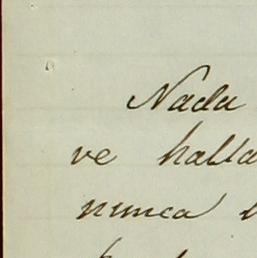 Nada
ve halla
nunca